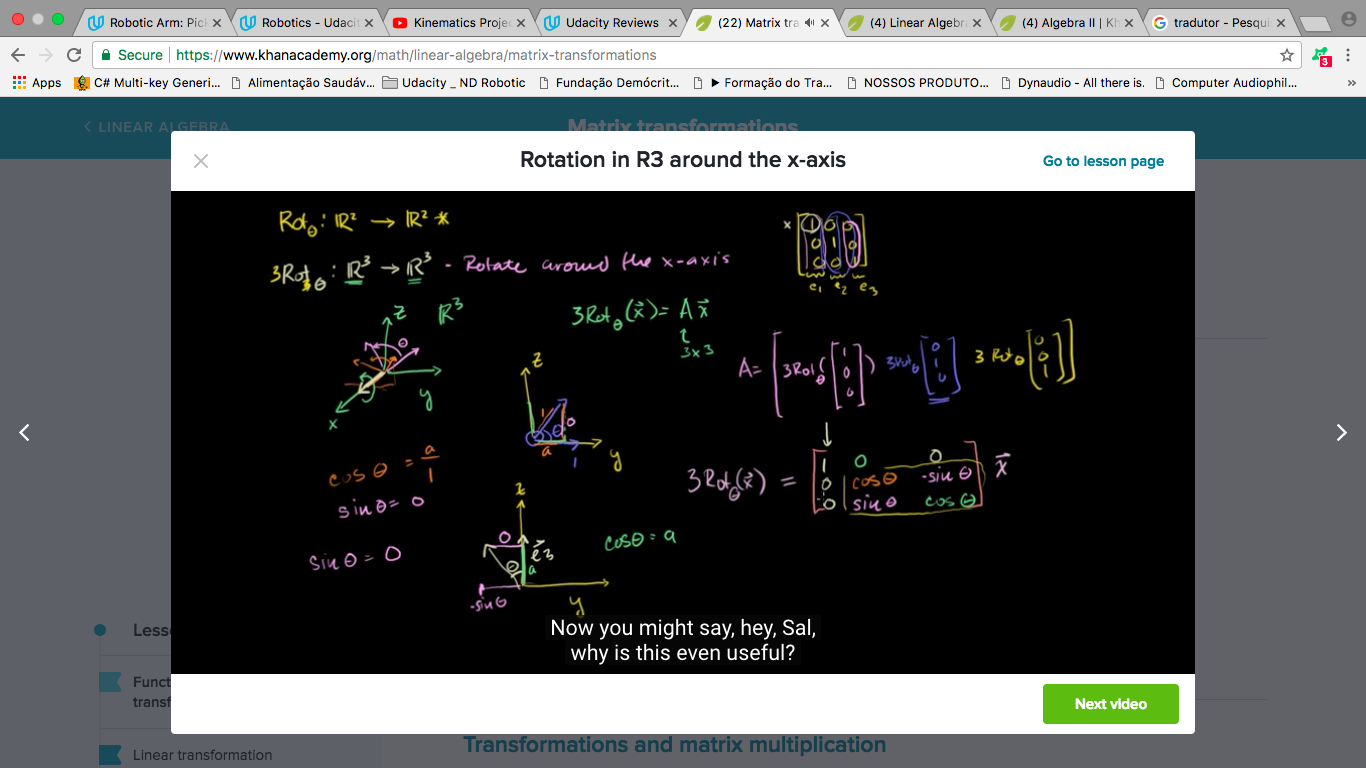 Robotic Arm: Pic
Robotics - Udaci
Kinematics Projec
Udacity Reviews
(22) Matrix tra
(4) Linear Algebra
(4) Algebra II | Kh
tradutor - Pesqui
Secure
https://www.khanacademy.org/math/linear-algebra/matrix-transformations
3
Apps
C# Multi-key Generi...
Alimentação Saudáv...
Udacity _ ND Robotic
Fundação Demócrit...
▶ Formação do Tra...
NOSSOS PRODUTO...
Dynaudio - All there is.
Computer Audiophil...
»
< LINEAR ALGEBRA
Matrix transformations
×
Rotation in R3 around the x-axis
Go to lesson page
Rotθ: ℝ² → ℝ² *
3Rotθ: ℝ³ → ℝ³ - Rotate around the x-axis
x [1 0 0
0 1 0
0 0 1]
e₁ e₂ e₃
z ℝ³
θ
y
x
3Rotθ(x⃗) = A x⃗
3x3
A = [3Rotθ([1 0 0]) 3Rotθ[0 1 0] 3Rotθ[0 0 1]]
z
1 θ o
a
1
y
cos θ = a/1
sin θ = o
sin θ = o
3Rotθ(x⃗) = [1 0 0
0 cos θ -sin θ
0 sin θ cos θ] x⃗
z
o
e⃗₃
θ a
-sin θ
y
cos θ = a
Now you might say, hey, Sal,
why is this even useful?
Less
Funct
transf
Linear transformation
Next video
Transformations and matrix multiplication